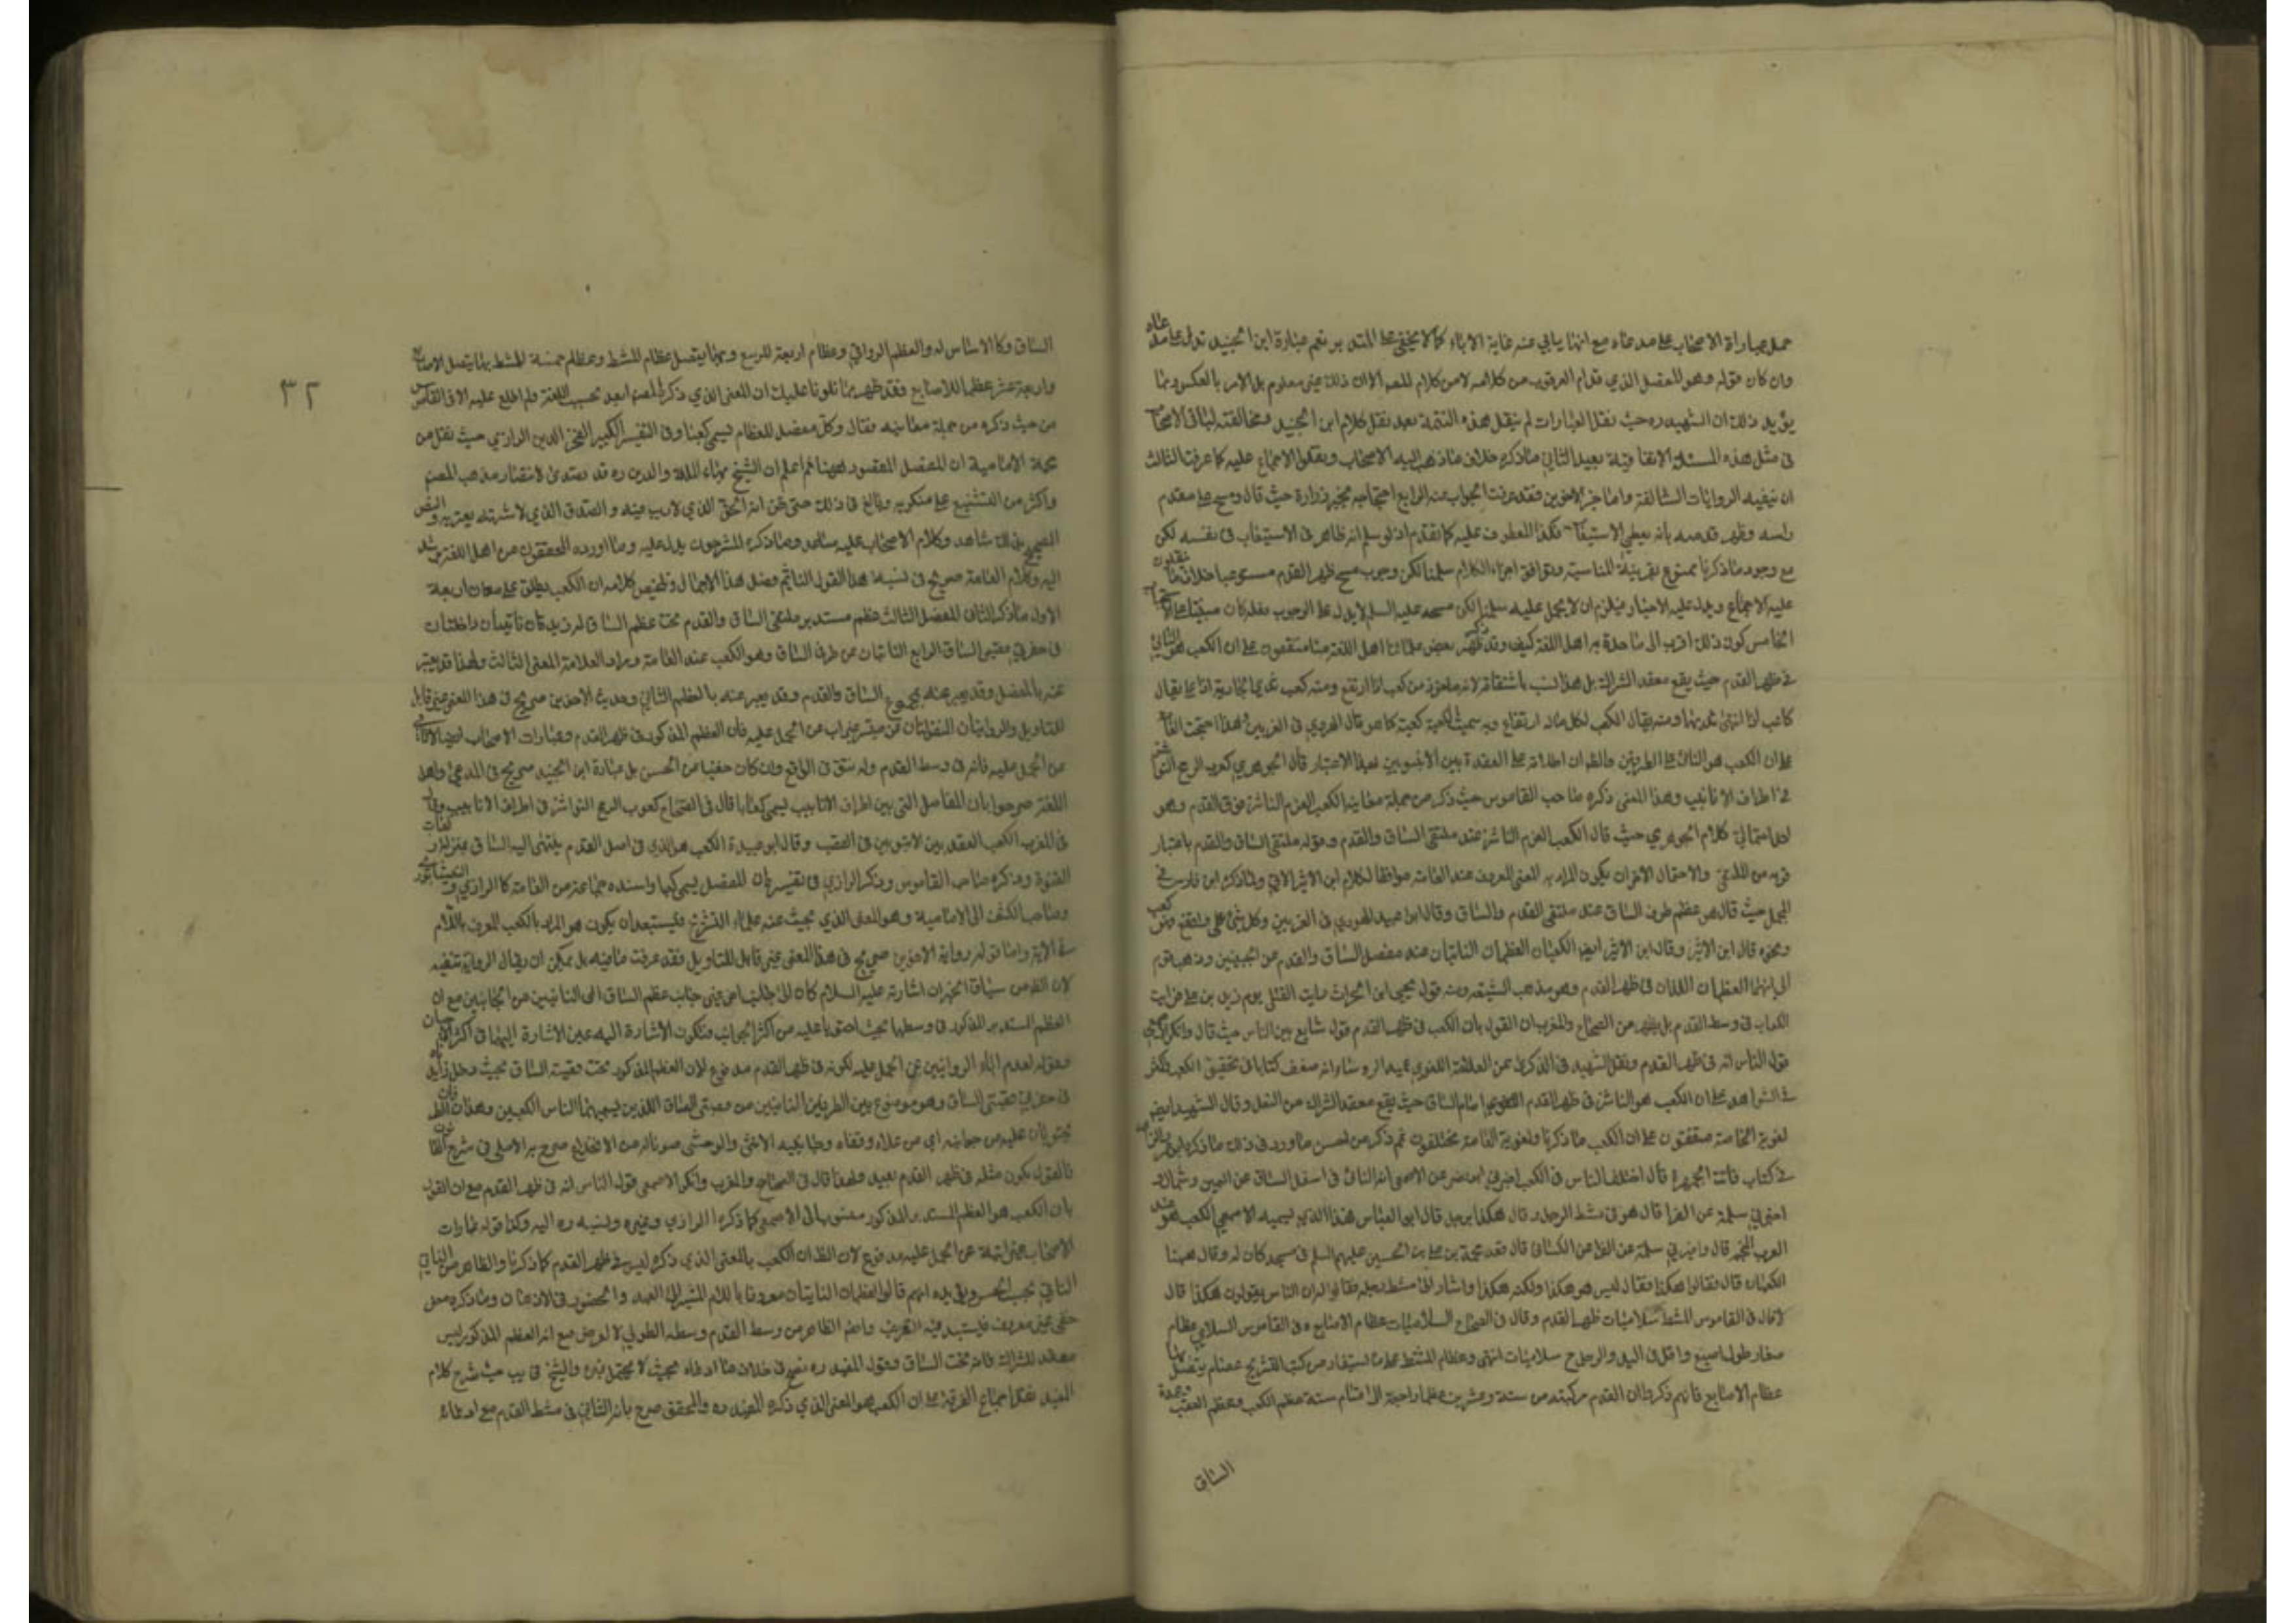 حمل عبارات الاصحاب على مدعاه مع انها يأبى عنه غاية الاباء كما لا يخفى على المتدبر نعم عبارة ابن الجنيد تدل على مدعاه
وان كان قوله وهو المفصل الذي قدام العرقوب من كلامه لا من كلام المصه الا ان ذلك غير معلوم بل الامر بالعكس وربما
يؤيد ذلك ان الشهيد ره حيث نقل العبارات لم ينقل هذه التتمة بعد نقل كلام ابن الجنيد ومخالفته لباقي الاصحاب
في مثل هذه المسئلة الاتفاقية بعيد الثاني ما ذكره خلاف ما ذهب اليه الاصحاب ونقلوا الاجماع عليه كما عرفت الثالث
ان ينفيه الروايات السالفة واما خبر الاخوين فقد عرفت الجواب عنه الرابع احتجاجه بخبر زرارة حيث قال ومسح على مقدم
راسه وظهر قدميه بانه يعطي الاستيعاب فكذا المعطوف عليه كما تقدم اذ لو سلم انه ظاهر في الاستيعاب في نفسه لكن
مع وجود ما ذكرنا ممنوع بقرينة المناسبة وتوافق اجزاء الكلام سلمنا لكن وجوب مسح ظهر القدم مستوعبا خلاف ما نقلوا
عليه الاجماع ويدل عليه الاخبار فيلزم ان لا يحمل عليه سلمنا لكن مسحه عليه السلم لا يدل على الوجوب فلعله كان مستحبا
الخامس كون ذلك اقرب الى ما حدده به اهل اللغة كيف وقد ذكر بعض علمائنا اهل اللغة منا متفقون على ان الكعب هو الناتي
في ظهر القدم حيث يقع معقد الشراك بل هذا انسب باشتقاقه لانه ماخوذ من كعب اذا ارتفع ومنه كعب ثدي الجارية اذا علا يقال
كاعب اذا انتهى ثديها ومنه يقال الكعب لكل ماله ارتفاع وبه سميت الكعبة كعبة كما مر قال الهروي في الغريبين
على ان الكعب هو الناتي على الطرفين والظ ان اطلاقه على العقدة بين الانبوبين بهذا الاعتبار قال الجوهري كعوب الرمح النواشز
في اطراف الانابيب وهذا المعنى ذكره صاحب القاموس حيث ذكر من جملة معانيه الكعب العظم الناشز فوق القدم وهو
احد احتمالي كلام الجوهري حيث قال الكعب العظم الناشز عند ملتقى الساق والقدم وقوله ملتقى الساق والقدم باعتبار
قربه من الملتقى والاحتمال الاخر ان يكون المراد به المعنى المعروف عند العامة موافقا لكلام ابن الاثير الاتي وما ذكره ابن فارس في
المجمل حيث قال هو عظم طرف الساق عند ملتقى القدم والساق وقال ابو عبيد الهروي في الغريبين وكل شيء علا وارتفع فهو كعب
ونحوه قال ابن الاثير وقال ابن الاثير ايضا الكعبان العظمان الناتيان عند مفصل الساق والقدم عن الجنبين وذهب قوم
الى انهما العظمان اللذان في ظهر القدم وهو مذهب الشيعة ومنه قول يحيى ابن الحرث رايت القتلى يوم زيد بن علي فرايت
الكعاب في وسط القدم بل يظهر من الصحاح والمغرب ان القول بان الكعب في ظهر القدم قول شايع بين الناس حيث قال وانكر الاصمعي
قول الناس انه في ظهر القدم ونقل الشهيد في الذكرى عن العلامة اللغوي عميد الرؤسا وانه صنف كتابا في تحقيق الكعب واكثر
في الشواهد على ان الكعب هو الناشز في ظهر القدم امام الساق حيث يقع معقد الشراك من النعل وقال الشهيد ايض
لغوية الخاصة متفقون على ان الكعب ما ذكرنا ولغوية العامة مختلفون ثم ذكر من احسن ما ورد في ذلك ما ذكره ابو عمر الزاهد
في كتاب فائت الجمهرة قال اختلف الناس في الكعب اخبرني ابو نصر عن الاصمعي انه الناتئ في اسفل الساق عن اليمين وشمال و
اخبرني سلمة عن الفرا قال هو في مشط الرجل وقال هكذا برجله قال ابو العباس هذا الذي يسميه الاصمعي الكعب هو عند
العرب المنجم قال واخبرني سلمة عن الفرا عن الكسائي قال قعد محمد بن علي بن الحسين عليهم السلم في مسجد كان له وقال ههنا
الكعبان قال فقالوا هكذا فقال ليس هو هكذا ولكنه هكذا واشار الى مشط رجله فقالوا له ان الناس يقولون هكذا قال
لا قال في القاموس المشط سلاميات ظهر القدم وقال في الصحاح السلاميات عظام الاصابع وفي القاموس السلامى عظام
صغار طول اصبع واقل في اليد والرجل ج سلاميات انتهى وعظام المشط على ما يستفاد من كتب التشريح عظام يتصل بها
عظام الاصابع فانهم ذكروا ان القدم مركبة من ستة وعشرين عظما راجعة الى اقسام ستة عظم الكعب وعظم العقب
الساق
٣٢
الساق وكالاساس له والعظم الزورقي وعظام اربعة للرسغ وبها يتصل عظام المشط وعظام خمسة للمشط بها يتصل الاصابع
واربعة عشر عظما للاصابع فقد ظهر بما تلونا عليك ان المعنى الذي ذكره المصه ابعد بحسب اللغة ولم اطلع عليه الا في القاموس
من حيث ذكره من جملة معانيه فقال وكل مفصل للعظام يسمى كعبا وفي التفسير الكبير للفخر الدين الرازي حيث نقل من
حجة الامامية ان المفصل المقصود ههنا ثم اعلم ان الشيخ بهاء الملة والدين ره قد تصدى لانتصار مذهب المصه
واكثر من التشنيع على منكريه وبالغ في ذلك حتى ظن انه الحق الذي لا ريب فيه والصدق الذي لا شبهة يعتريه والنص
الصحيح بذلك شاهد وكلام الاصحاب عليه مساعد وما ذكره المشرحون يدل عليه وما اورده المحققون من اهل اللغة يرشد
اليه وكلام العامة صريح في نسبة هذا القول الينا ثم فصل هذا الاجمال وتلخيص كلامه ان الكعب يطلق على معان اربعة
الاول ما ذكر الثاني المفصل الثالث عظم مستدير ملتقى الساق والقدم تحت عظم الساق له زيدتان ناتيتان داخلتان
في حفرتي قصبتي الساق الرابع الناتيان عن طرف الساق وهو الكعب عند العامة ومراد العلامة المعنى الثالث ولهذا قد يعبر
عنه بالمفصل وقد يعبر عنه بمجمع الساق والقدم وقد يعبر عنه بالعظم الثاني وحديث الاخوين صريح في هذا المعنى غير قابل
للتاويل والروايتان غير ابيتان عن الحمل عليه فان العظم المذكور في ظهر القدم وعبارات الاصحاب ايضا لا تابى
عن الحمل عليه فانه في وسط القدم وله نتو في الواقع وان كان خفيا عن الحس بل عبارة ابن الجنيد صريح في المدعى واهل
اللغة صرحوا بان المفاصل التي بين اطراف الانابيب يسمى كعابا قال في الصحاح كعوب الرمح النواشز في اطراف الانابيب وقال
في المغرب الكعب العقدة بين الانبوبين في القصب وقال ابو عبيدة الكعب هو الذي في اصل القدم ينتهي اليه الساق بمنزلة كعاب
القنوة وذكره صاحب القاموس وذكر الرازي في تفسيره ان المفصل يسمى كعبا واسنده جماعة من العامة كالرازي والنيشابوري
وصاحب الكشف الى الامامية وهو المعنى الذي يبحث عنه علماء التشريح ويستبعد ان يكون هو المراد بالكعب المعرف باللام
في الاية واما قوله رواية الاخوين صريح في هذا المعنى غير قابل للتاويل فقد عرفت ما فيه بل يمكن ان يقال الرواية تنفيه
لان الظ من سياق الخبر ان اشارته عليه السلام كان الى جانبي عظم الساق اعني الناتيين من الجانبين مع ان
العظم المستدير المذكور في وسطهما بحيث احتويا عليه من اكثر الجوانب فتكون الاشارة اليه عين الاشارة اليهما في اكثر الجهات
وقوله لعدم اباء الروايتين عن الحمل عليه لكونه في ظهر القدم مدفوع لان العظم المذكور تحت قصبة الساق بحيث دخل زايدتاه
في حفرتي قصبتي الساق وهو موضوع بين الطرفين الناتيين من قصبتي الساق اللذين يسميهما الناس الكعبين وهذان الطرفان
يحتويان عليه من جوانبه اي من علاه وقفاه وجانبيه الانسي والوحشي صرح به الاملي في شرح القانون
فالقول بكون مثله في ظهر القدم بعيد ولهذا قال في الصحاح والمغرب وانكر الاصمعي قول الناس انه في ظهر القدم مع ان القول
بان الكعب هو العظم المستدير المذكور منسوب الى الاصمعي كما ذكره الرازي وغيره ونسبه ره اليه وكذا قوله عبارات
الاصحاب غير ابية عن الحمل عليه مدفوع لان الظ ان الكعب بالمعنى الذي ذكره ليس في ظهر القدم كما ذكرنا والظاهر من الناتي
الناتي بحسب الحس ويؤيده انهم قالوا العظمان الناتيان معرفا باللام المشيرة الى العهد والحضور في الاذهان وما ذكره معنى
خفي غير معروف فيستبعد فيه التعريف وايضا الظاهر من وسط القدم وسطه الطولي لا العرضي مع انه العظم المذكور ليس
معقد الشراك فانه تحت الساق وقول المفيد ره نص في خلاف ما ادعاه بحيث لا يحتمل غيره والشيخ في يب حيث شرح كلام
المفيد نقل اجماع الفرقة على ان الكعب هو المعنى الذي ذكره المفيد ره والمحقق صرح بانه الناتي في مشط القدم مع ادعائه